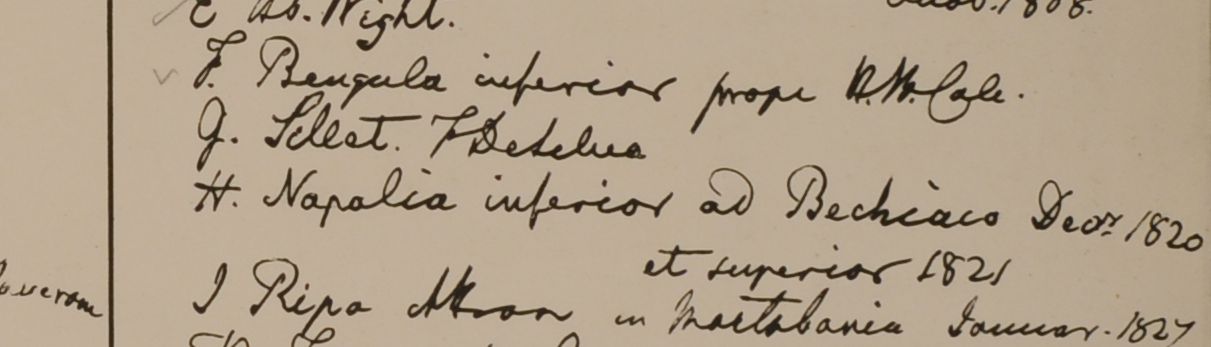 E Hb. Wight.
F. Bengala inferior prope H.M. Cale.
G. Sillet. F DeSilva
H. Napalia inferior ad Bechiaco Decr. 1820
et superior 1821
I Ripa Attran in Martabania Januar. 1827